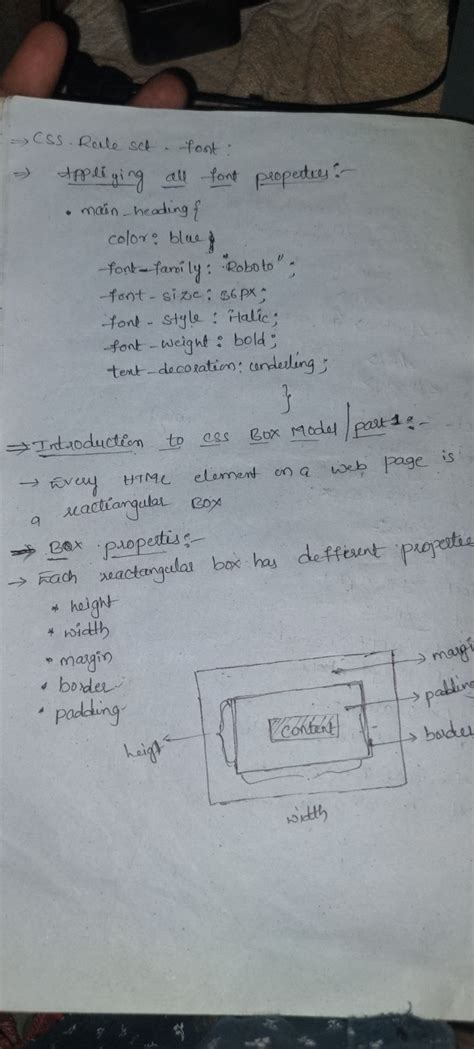 → CSS. Rule set - font:
⇒ Appliying all font properties:-
• main_heading{
color: blue;
font-family: "Roboto";
font-size: 36px;
font-style: italic;
font-weight: bold;
text-decoration: underling;
}
⇒ Introduction to css Box Model / part 1:-
→ Every HTML element on a web page is
a reactiangular Box
⇒ Box propertis:-
→ Each reactangular box has defferent propertie
* height
* width
• margin
• border
• padding
→ margin
→ padding
content
→ border
height
width